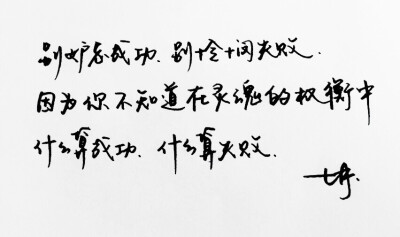 别妒忌成功、别怜悯失败.
因为你不知道在灵魂的权衡中
什么算成功、什么算失败.